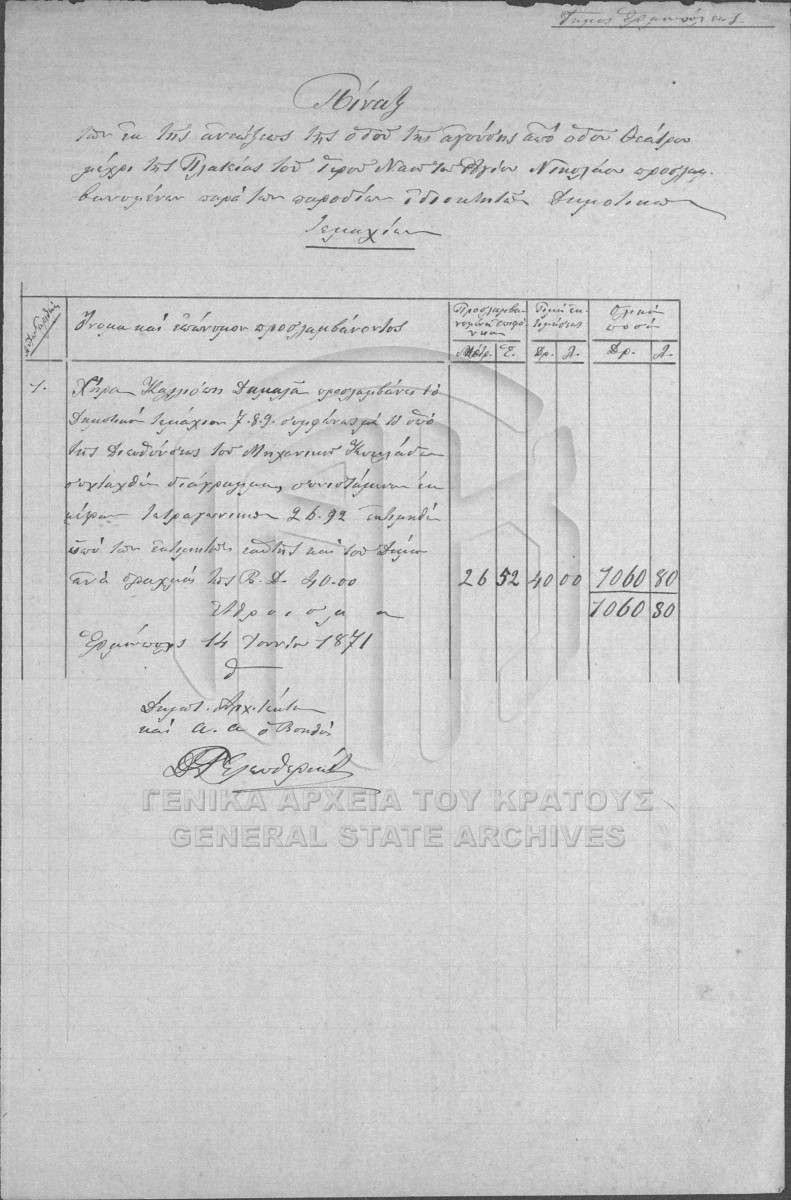 Δήμος Ερμουπόλεως
Πίναξ
των εκ της ανοίξεως της οδού της αγούσης από οδού Θεάτρου
μέχρι της Πλατείας του Ιερού Ναού του Αγίου Νικολάου προσλαμ-
βανομένων παρά των παροδίων ιδιοκτητών Δημοτικών
Τεμαχίων
Όνομα και επώνυμον προσλαμβάνοντος
Προσλαμβα-
νομένη επιφά-
νεια
Τιμή εκ-
τιμήσεως
Ολικόν
ποσόν
Μέτρ. Ε. Δρ. Λ. Δρ. Λ.
1. Χήρα Καλλιόπη Δαμαλά προσλαμβάνει το
Δημοτικόν τεμάχιον 7.8.9. συμφώνως με το υπό
της Διευθύνσεως του Μηχανικού Κυκλάδων
συνταχθέν διάγραμμα, συνιστάμενον εκ
μέτρων τετραγωνικών 26.92 εκτιμηθέν
υπό των εκτιμητών αυτής και του Δήμου
ανά δραχμάς τος Β.Π. 40.00 26 52 40 00 1060 80
Άθροισμα 1060 80
Ερμούπολις 14 Ιουνίου 1871
Ο
Δημοτ. Αρχιτέκτων
και α. α ο Βοηθός
ΓΕΝΙΚΑ ΑΡΧΕΙΑ ΤΟΥ ΚΡΑΤΟΥΣ
GENERAL STATE ARCHIVES